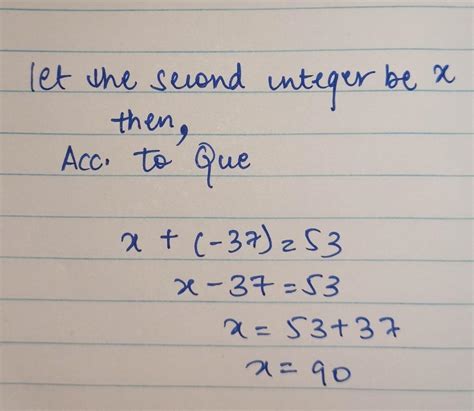 let the second integer be x
then,
Acc. to Que
x + (-37) = 53
x - 37 = 53
x = 53 + 37
x = 90